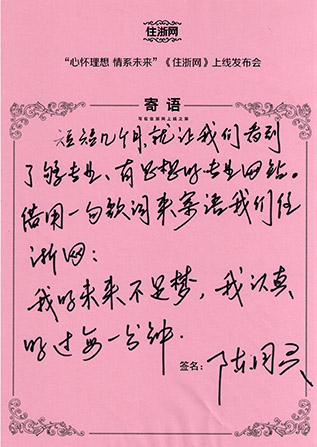 住浙网
“心怀理想 情系未来”《住浙网》上线发布会
寄 语
写在住浙网上线之际
短短几个月就让我们看到
了够专业、有思想的专业网站。
借用一句歌词来寄语我们住
浙网：
我的未来不是梦，我认真
的过每一分钟.
签名：